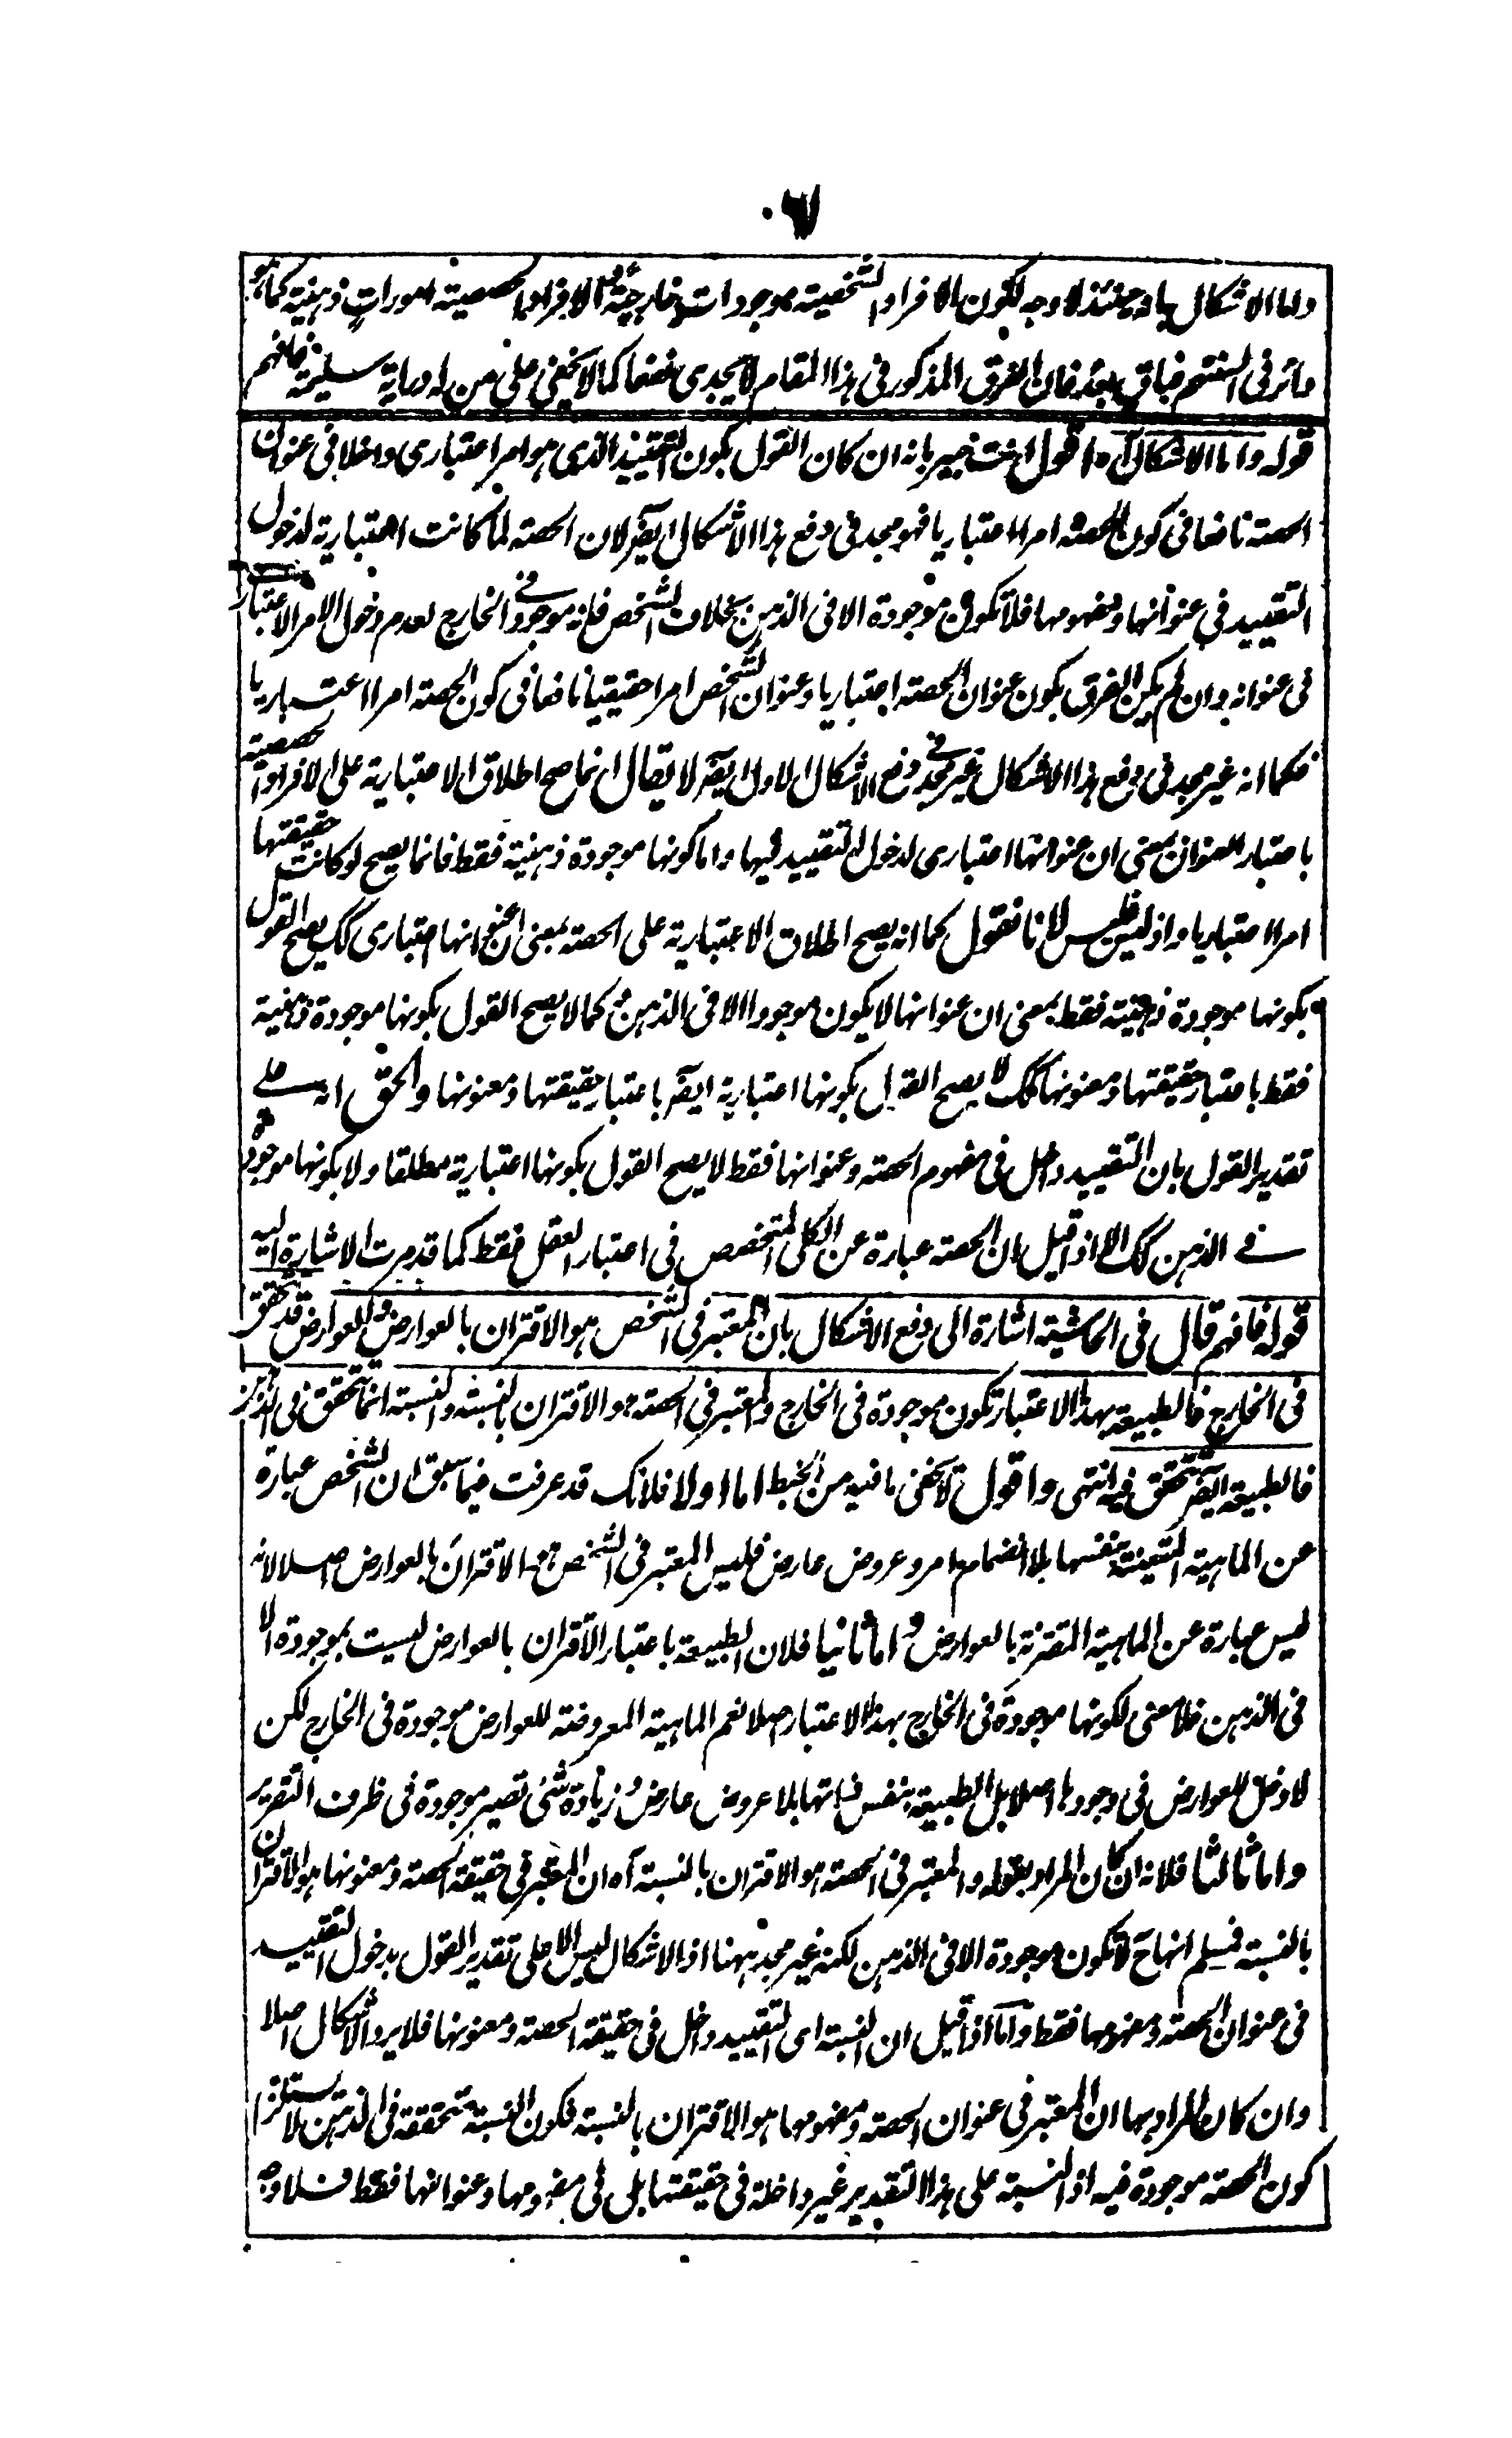 واما الاشكال بانه حينئذ لا وجه لكون الافراد الشخصية موجودات خارجية والافراد الحصصية امورات ذهنية كما هو
ما ترفى فباق بعد فان الفرق المذكور فى هذا المقام لا يجدى نفعا كما لا يخفى على من له دراية سليمة فافهم
قوله واما الاشكال آه اقول انت خبير بانه ان كان القول بكون التقييد الذى هو امر اعتبارى داخلا فى عنوان
الحصته نافعا فى كون الحصته امرا اعتباريا فهو مجد فى دفع هذا الاشكال ايضر لان الحصته لما كانت اعتبارية لدخول
التقييد فى عنوانها ومفهومها فلا تكون موجودة الا فى الذهن بخلاف الشخص فانه موجود فى الخارج لعدم دخول الامر الاعتبار
فى عنوانه وان لم يكن الفرق بكون عنوان الحصته اعتباريا وعنوان الشخص امرا حقيقيا نافعا فى كون الحصته امرا اعتباريا
فكما انه غير مجد فى دفع هذا الاشكال غير مجد فى دفع الاشكال الاول ايضر لا يقال انما صح اطلاق الاعتبارية على الافراد الحصصية
باعتبار العنوان بمعنى ان عنوانها اعتبارى لدخول التقييد فيها واما كونها موجودة ذهنية فقط فانما يصح لو كانت حقيقتها
امرا اعتباريا واذ ليس فليس لانا نقول كما انه يصح اطلاق الاعتبارية على الحصته بمعنى ان عنوانها اعتبارى كك يصح القول
بكونها موجودة ذهنية فقط بمعنى ان عنوانها لا يكون موجودا الا فى الذهن كما لا يصح القول بكونها موجودة ذهنية
فقط باعتبار حقيقتها ومعنونها كك لا يصح القول بكونها اعتبارية ايضر باعتبار حقيقتها ومعنونها والحق انه على
تقدير القول بان التقييد داخل فى مفهوم الحصته وعنوانها فقط لا يصح القول بكونها اعتبارية مطلقا ولا بكونها موجودة
فى الذهن كك الا اذا قيل ان الحصته عبارة عن الكلى المتخصص فى اعتبار العقل فقط كما قد مرت الاشارة اليه
قوله فافهم قال فى الحاشية اشارة الى دفع الاشكال بان المعتبر فى الشخص هو الاقتران بالعوارض والعوارض قد تتحقق
فى الخارج فالطبيعة بهذا الاعتبار تكون موجودة فى الخارج والمعتبر فى الحصته هو الاقتران بالنسبة والنسبة انما تتحقق فى الذهن
فالطبيعة ايضر تتحقق فيه انتهى واقول لا يخفى ما فيه من الخبط اما اولا فلانك قد عرفت فيما سبق ان الشخص عبارة
عن الماهية المتعينة بنفسها بلا انضمام امر وعروض عارض فليس المعتبر فى الشخص هو الاقتران بالعوارض اصلا لانه
ليس عبارة عن الماهية المقترنة بالعوارض واما ثانيا فلان الطبيعة باعتبار الاقتران بالعوارض ليست بموجودة الا
فى الذهن فلا معنى لكونها موجودة فى الخارج بهذا الاعتبار اصلا نعم الماهية المعروضة للعوارض موجودة فى الخارج لكن
لا دخل للعوارض فى وجودها اصلا بل الطبيعة بنفس ذاتها بلا عروض عارض وزيادة شئ تصير موجودة فى ظرف التقرر
واما ثالثا فلانه ان كان المراد بقوله والمعتبر فى الحصته هو الاقتران بالنسبته آه ان المعتبر فى حقيقة الحصته ومعنونها هو الاقتران
بالنسبته فمسلم انها ح لا تكون موجودة الا فى الذهن لكنه غير مجد ههنا اذ الاشكال ليس الا على تقدير القول بدخول التقييد
فى عنوان الحصته ومفهومها فقط واما اذا قيل ان النسبته اى التقييد داخل فى حقيقة الحصته ومعنونها فلا يرد الاشكال اصلا
وان كان المراد بها ان المعتبر فى عنوان الحصته ومفهومها هو الاقتران بالنسبته فكون النسبته متحققة فى الذهن لا يستلزم
كون الحصته موجودة فيه اذ النسبته على هذا التقدير غير داخلة فى حقيقتها بل فى مفهومها وعنوانها فقط فلا وجه